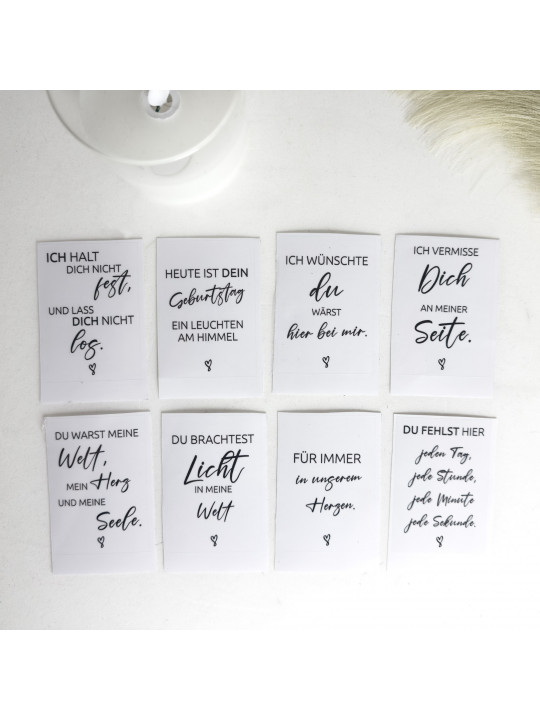 ICH HALT
DICH NICHT
fest,
UND LASS
DICH NICHT
los.
HEUTE IST DEIN
Geburtstag
EIN LEUCHTEN
AM HIMMEL
ICH WÜNSCHTE
du
WÄRST
hier bei mir.
ICH VERMISSE
Dich
AN MEINER
Seite.
DU WARST MEINE
Welt,
MEIN Herz
UND MEINE
Seele.
DU BRACHTEST
Licht
IN MEINE
Welt
FÜR IMMER
in unserem
Herzen.
DU FEHLST HIER
jeden Tag,
jede Stunde,
jede Minute
jede Sekunde.